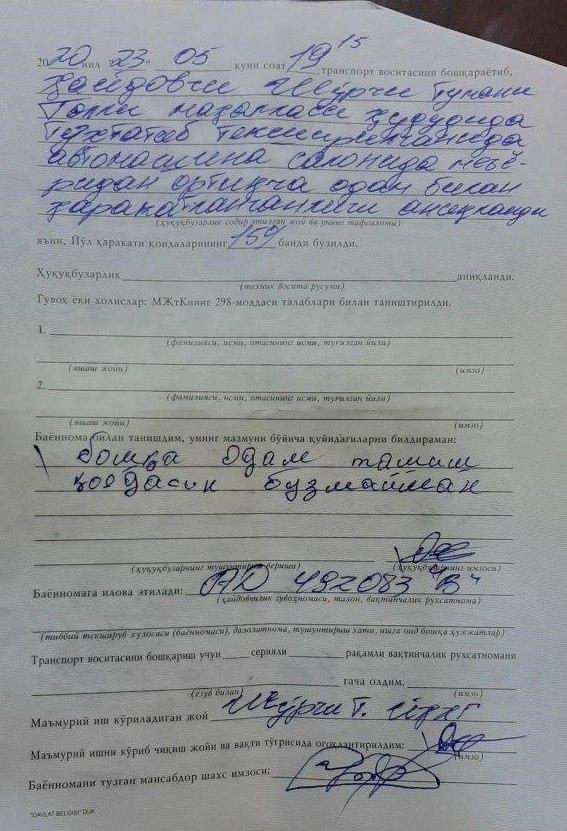 2020 йил "23" 05 куни соат 19 15 транспорт воситасини бошқараётиб,
Ҳайдовчи Шўрчи тумани
маҳалласи ҳудудида
тўхтатиб текширилганида
автомашина салонида меъё-
ридан ортиқча одам билан
ҳаракатланганлиги аниқланди
(ҳуқуқбузарлик содир этилган жой ва унинг тафсилоти)
яъни, Йўл ҳаракати қоидаларининг 159 банди бузилди.
Ҳуқуқбузарлик аниқланди.
(техник восита русуми)
Гувоҳ ёки холислар: МЖтКнинг 298-моддаси талаблари билан таништирилди.
1.
(фамилияси, исми, отасининг исми, туғилган йили)
(яшаш жойи) (имзо)
2.
(фамилияси, исми, отасининг исми, туғилган йили)
(яшаш жойи) (имзо)
Баённома билан танишдим, унинг мазмуни бўйича қуйидагиларни билдираман:
бошқа одам ташиш
қоидасин бузмайман
(ҳуқуқбузарнинг тушунтириш бериши) (ҳуқуқбузарнинг имзоси)
Баённомага илова этилади: AD 492083 "B"
(ҳайдовчилик гувоҳномаси, талон, вақтинчалик рухсатнома)
(тиббий текширув хулосаси (баённомаси), далолатнома, тушунтириш хати, ишга оид бошқа ҳужжатлар)
Транспорт воситасини бошқариш учун серияли рақамли вақтинчалик рухсатномани
гача олдим.
(ёзув билан) (имзо)
Маъмурий иш кўриладиган жой Шўрчи т.
Маъмурий ишни кўриб чиқиш жойи ва вақти тўғрисида огоҳлантирилдим:
(имзо)
Баённомани тузган мансабдор шахс имзоси:
"DAVLAT BELGISI" DUK